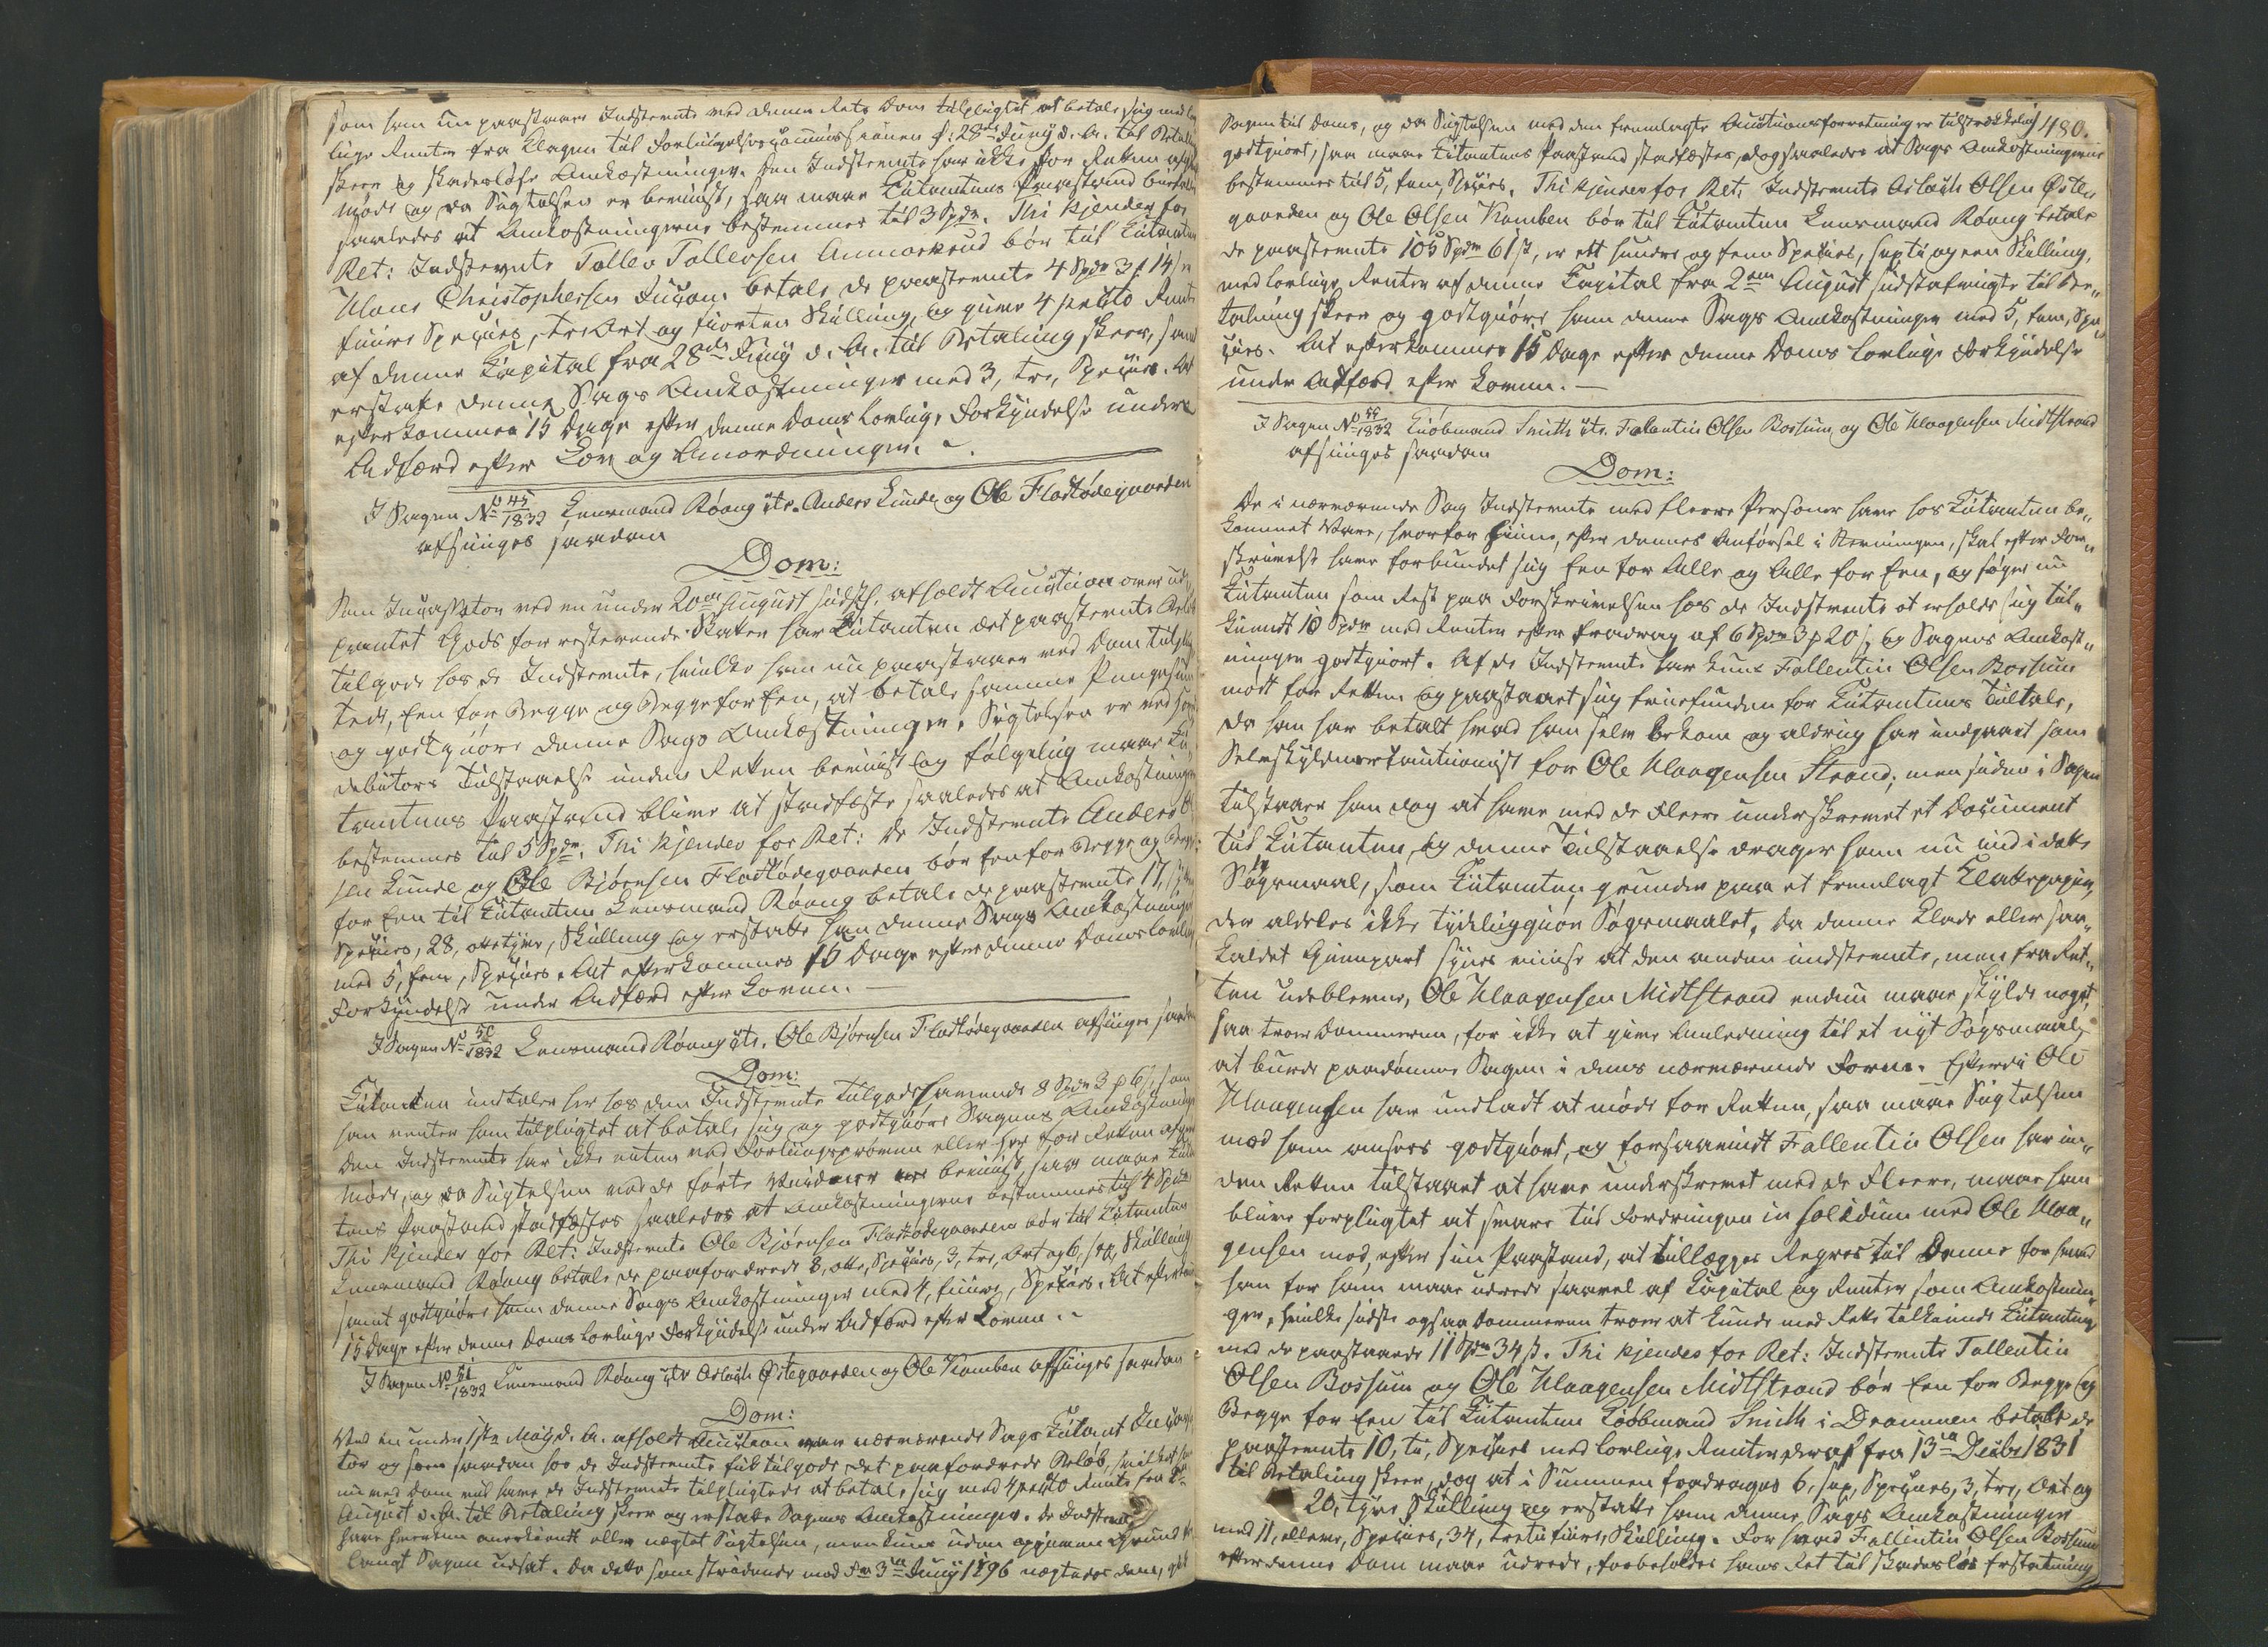 som han nu paastaaer Indstevnte ved denne Rets Dom tilpligtet at betale sig med lov-
lige Renter fra Klagen til Forligelsescommissionen d. 28de Juny d. A. til Betaling
skeer og skadesløse Omkostninger. Den Indstevnte har ikke for Retten afgivet
Møde og da Sigtelsen er beviist, saa maae Citantens Paastand bifaldes
saaledes at Omkostningerne bestemmes til 3 Spdr. Thi kjendes for
Ret: Indstevnte Tollev Tollevsen Ammerud bør til Citanten
Hans Christophersen betale de paastevnte 4 Spdr 3 # 14 s
fiire Species, tre Ort og fiorten Skilling, og give 4 pCto Rente
af denne Capital fra 28de Juny d. A. til Betaling skeer, samt
erstatte denne Sags Omkostninger med 3, tre, Species. At
efterkommes 15 Dage efter denne Doms lovlige Forkyndelse under
Adfærd efter Lov og Anordninger.
I Sagen No 45/1832 Lensmand Röang ctr. Anders Lunde og Ole Flodtødegaarden
afsiiges saadan
Dom:
Som Incassator ved en under 20de August sidstl. afholdt Auction over ud-
pantet Gods for resterende Skatter har Citanten det paastevnte Beløb
tilgode hos de Indstevnte, hvilke han nu paastaaer ved Dom tilplig-
tede, Een for Begge og Begge for Een, at betale samme Pengesum
og godtgiøre denne Sags Omkostninger. Sigtelsen er ved
Debitors Tilstaaelse inden Retten beviist og følgelig maae Ci-
tantens Paastand blive at stadfæste saaledes at Omkostningerne
bestemmes til 5 Spdr. Thi kjendes for Ret: De Indstevnte Anders Ol-
sen Lunde og Ole Bjørnsen Flodtødegaarden bør Een for Begge og Begge
for Een til Citanten Lensmand Röang betale de paastevnte 17,
Species, 28, otte tyve, Skilling og erstatte ham denne Sags Omkostninger
med 5, fem, Species. At efterkommes 15 Dage efter denne Doms lovlige
Forkyndelse under Adfærd efter Loven.
I Sagen No 50/1832 Lensmand Röang ctr. Ole Bjørnsen Flodtødegaarden afsiiges saadan
Dom:
Citanten indtaler her hos den Indstevnte tilgodehavende 8 Spdr 3 # 6 s, som
han venter ham tilpligtet at betale sig og godtgiøre Sagens Omkostninger
Den Indstevnte har ikke enten ved Forligsprøven eller her for Retten afgivet
Møde, og da Sigtelsen ved de førte Vidner er beviist, saa maae Citan-
tens Paastand stadfæstes saaledes at Omkostningerne bestemmes til 4 Spdr
Thi kjendes for Ret: Indstevnte Ole Bjørnsen Flodtødegaarden bør til Citanten
Lensmand Röang betale de paafordrede 8, otte, Species, 3, tre, Ort og 6, sex, Skilling
samt godtgiøre ham denne Sags Omkostninger med 4, fiire, Species. At efterkommes
15 Dage efter denne Doms lovlige Forkyndelse under Adfærd efter Loven.
I Sagen No 51/1832 Lensmand Röang ctr Aslach Østegaarden og Ole Komben afsiiges saadan
Dom:
Ved en under 1ste May d. A. afholdt Auction var nærværende Sags Citant Incassa-
tor og som saadan hos de Indstevnte fik tilgode det paafordrede Beløb, hvilket han
nu ved Dom vil have de Indstevnte tilpligtede at betale sig med 4 pCto Rente fra 2den
August d. A. til Betaling skeer og erstatte Sagens Omkostninger. De Indstevnte
have hverken anerkiendt eller nægtet Sigtelsen, men kuns uden opgiven Grund for-
langt Sagen udsat. Da dette som stridende mod Fr 3de Juny 1796 nægtedes dem,
480.
Sagen til Doms, og da Sigtelsen med den fremlagte Auctionsforretning er tilstrækkelig
godtgiort, saa maae Citantens Paastand stadfæstes, dog saaledes at Sags Omkostningerne
bestemmes til 5, fem, Species. Thi kjendes for Ret: Indstevnte Aslach Olsen Øste-
gaarden og Ole Olsen Komben bør til Citanten Lensmand Röang betale
de paastevnte 105 Spdr 61 s, er ett hundre og fem Species, sexti og een Skilling,
med lovlige Renter af denne Capital fra 2den August sidstafvigte til Be-
taling skeer og godtgiøre ham denne Sags Omkostninger med 5, fem, Spe-
cies. At efterkommes 15 Dage efter denne Doms lovlige Forkyndelse
under Adfærd efter Loven.
I Sagen No 59/1832 Kiøbmand Smith ctr. Fallentin Olsen Bossum og Ole Haagensen Midtstrand
afsiiges saadan
Dom:
De i nærværende Sag Indstevnte med fleere Personer have hos Citanten be-
kommet Vare, hvorfor hiine, efter dennes Anførsel i Stevningen, skal efter For-
skrivelse have forbundet sig Een for Alle og Alle for Een, og søger nu
Citanten som Rest paa Forskrivelsen hos de Indstevnte at erholde sig til-
kiendt 10 Spdr med Renter efter Fradrag af 6 Spdr 3 # 20 s, og Sagens Omkost-
ninger godtgiort. Af de Indstevnte har kuns Fallentin Olsen Bossum
mødt for Retten og paastaaet sig friefunden for Citantens Tiltale,
da han har betalt hvad han selv bekom og aldrig har indgaaet som
Selvskyldner Cautionist for Ole Haagensen Strand; men siden i Sagen
tilstaaer han dog at have med de Fleere underskrevet et Document
til Citanten, og denne Tilstaaelse drager ham nu ind i dette
Søgsmaal, som Citanten grunder paa et fremlagt Kladepapir,
der aldeles ikke tydeliggiør Søgsmaalet, da denne Klade eller saa-
kaldet Gienpart synes viise at den anden indstevnte, men fra Ret-
ten udeblevne, Ole Haagensen Midtstrand endnu maae skylde noget,
saa troer Dommeren, for ikke at give Anledning til et nyt Søgsmaal,
at burde paadømme Sagen i dens nærværende Form. Efterdi Ole
Haagensen har undladt at møde for Retten, saa maae Sigtelsen
mod ham ansees godtgiort, og forsaavidt Fallentin Olsen har in-
den Retten tilstaaet at have underskrevet med de Fleere, maae han
blive forpligtet at svare til Fordringen in solidum med Ole Haa-
gensen mod, efter sin Paastand, at tillægges Regres til Denne for hvad
han for ham maae udrede saavel af Capital og Renter som Omkostnin-
ger, hvilke sidste ogsaa Dommeren troer at kunde med Rette tilkiende Citanten
med de paastaaede 11 Spdr 34 s. Thi kjendes for Ret: Indstevnte Fallentin
Olsen Bossum og Ole Haagensen Midtstrand bør Een for Begge og
Begge for Een til Citanten Kiöbmand Smith i Drammen betale de
paastevnte 10, ti, Species med lovlige Renter deraf fra 13de Decbr 1831
til Betaling skeer, dog at i Summen fradrages 6, sex, Species, 3, tre, Ort og
20, tyve Skilling og erstatte ham denne Sags Omkostninger
med 11, elleve, Species, 34, tretifiire, Skilling. For hvad Fallentin Olsen Bossum
efter denne Dom maae udrede, forbeholdes hans Ret til skadesløs Erstatning